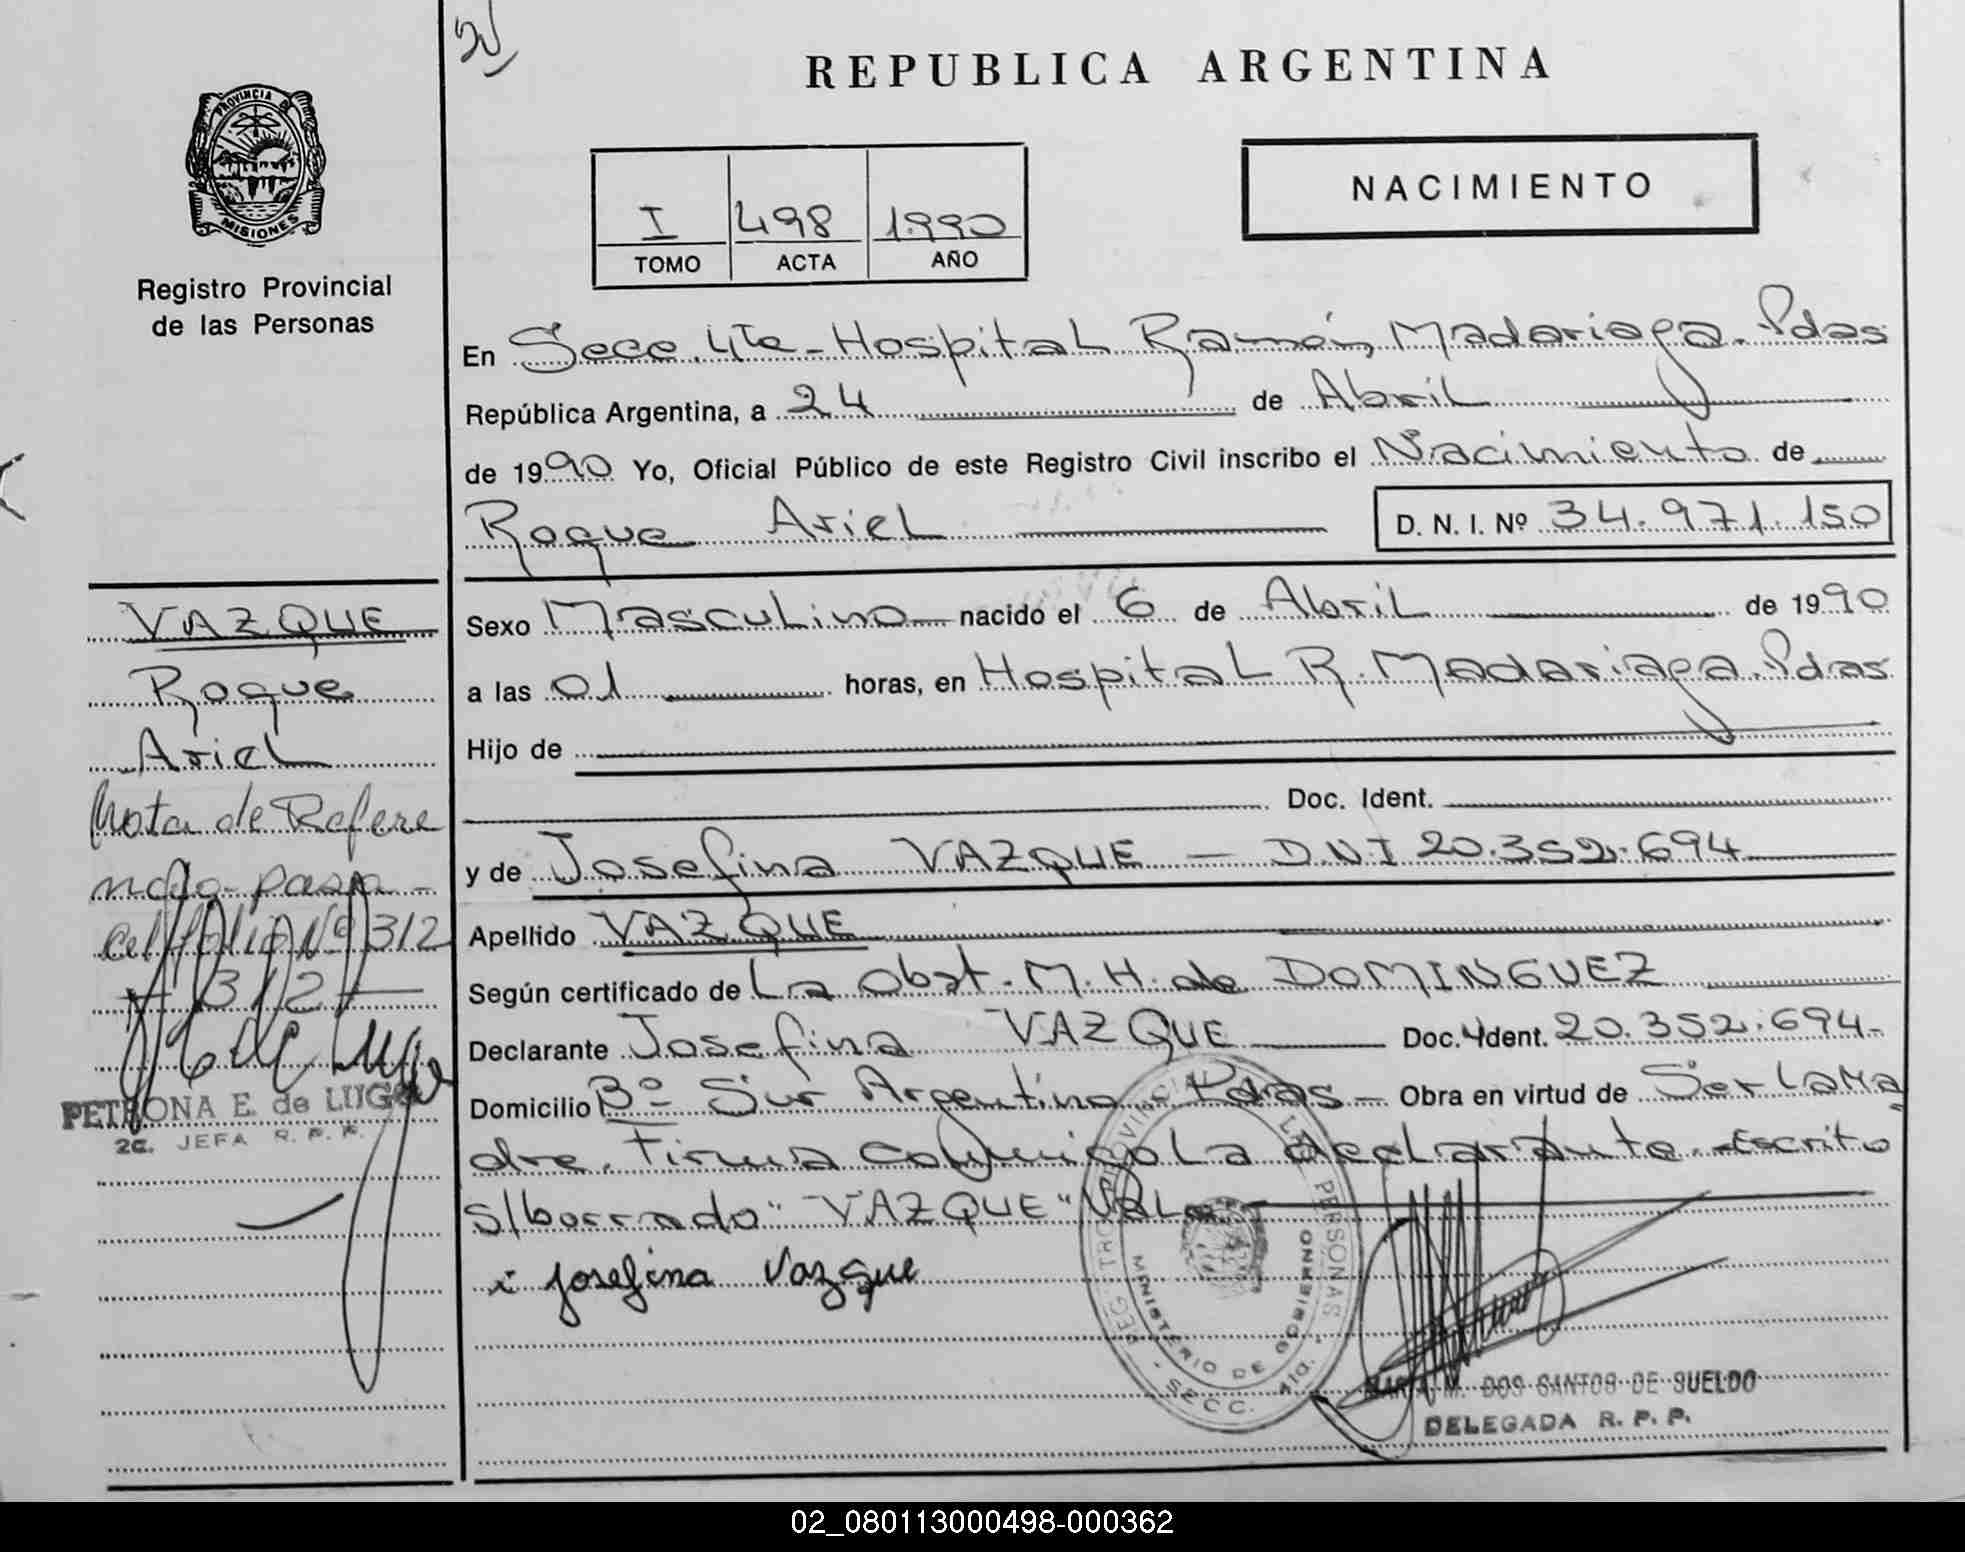 REPUBLICA ARGENTINA
PROVINCIA DE
MISIONES
Registro Provincial
de las Personas
I 498 1990
TOMO ACTA AÑO
NACIMIENTO
En Secc. 4ta - Hospital Ramón Madariaga. Pdas
República Argentina, a 24 de Abril
de 1990 Yo, Oficial Público de este Registro Civil inscribo el Nacimiento de
Roque Ariel D. N. I. Nº 34.971.150
Sexo Masculino nacido el 6 de Abril de 1990
a las 01 horas, en Hospital R. Madariaga. Pdas
Hijo de
Doc. Ident.
y de Josefina VAZQUE - DNI 20.352.694
Apellido VAZQUE
Según certificado de La Obst. M. H. de DOMINGUEZ
Declarante Josefina VAZQUE Doc. Ident. 20.352.694-
Domicilio Bº Sur Argentino Pdas - Obra en virtud de Ser la Ma
dre. Firma conmigo La declarante. Escrito
s/borrado "VAZQUE" Vale
Josefina Vazque
VAZQUE
Roque
Ariel
Nota de Refere
ncia pasa
al folio Nº 312
312
PETRONA E. de LUGO
2a. JEFA R. P. P.
REG. PROVINCIAL DE LAS PERSONAS
MINISTERIO DE GOBIERNO
SECC. 4ta.
MARIA M. DOS SANTOS DE SUELDO
DELEGADA R. P. P.
02_080113000498-000362